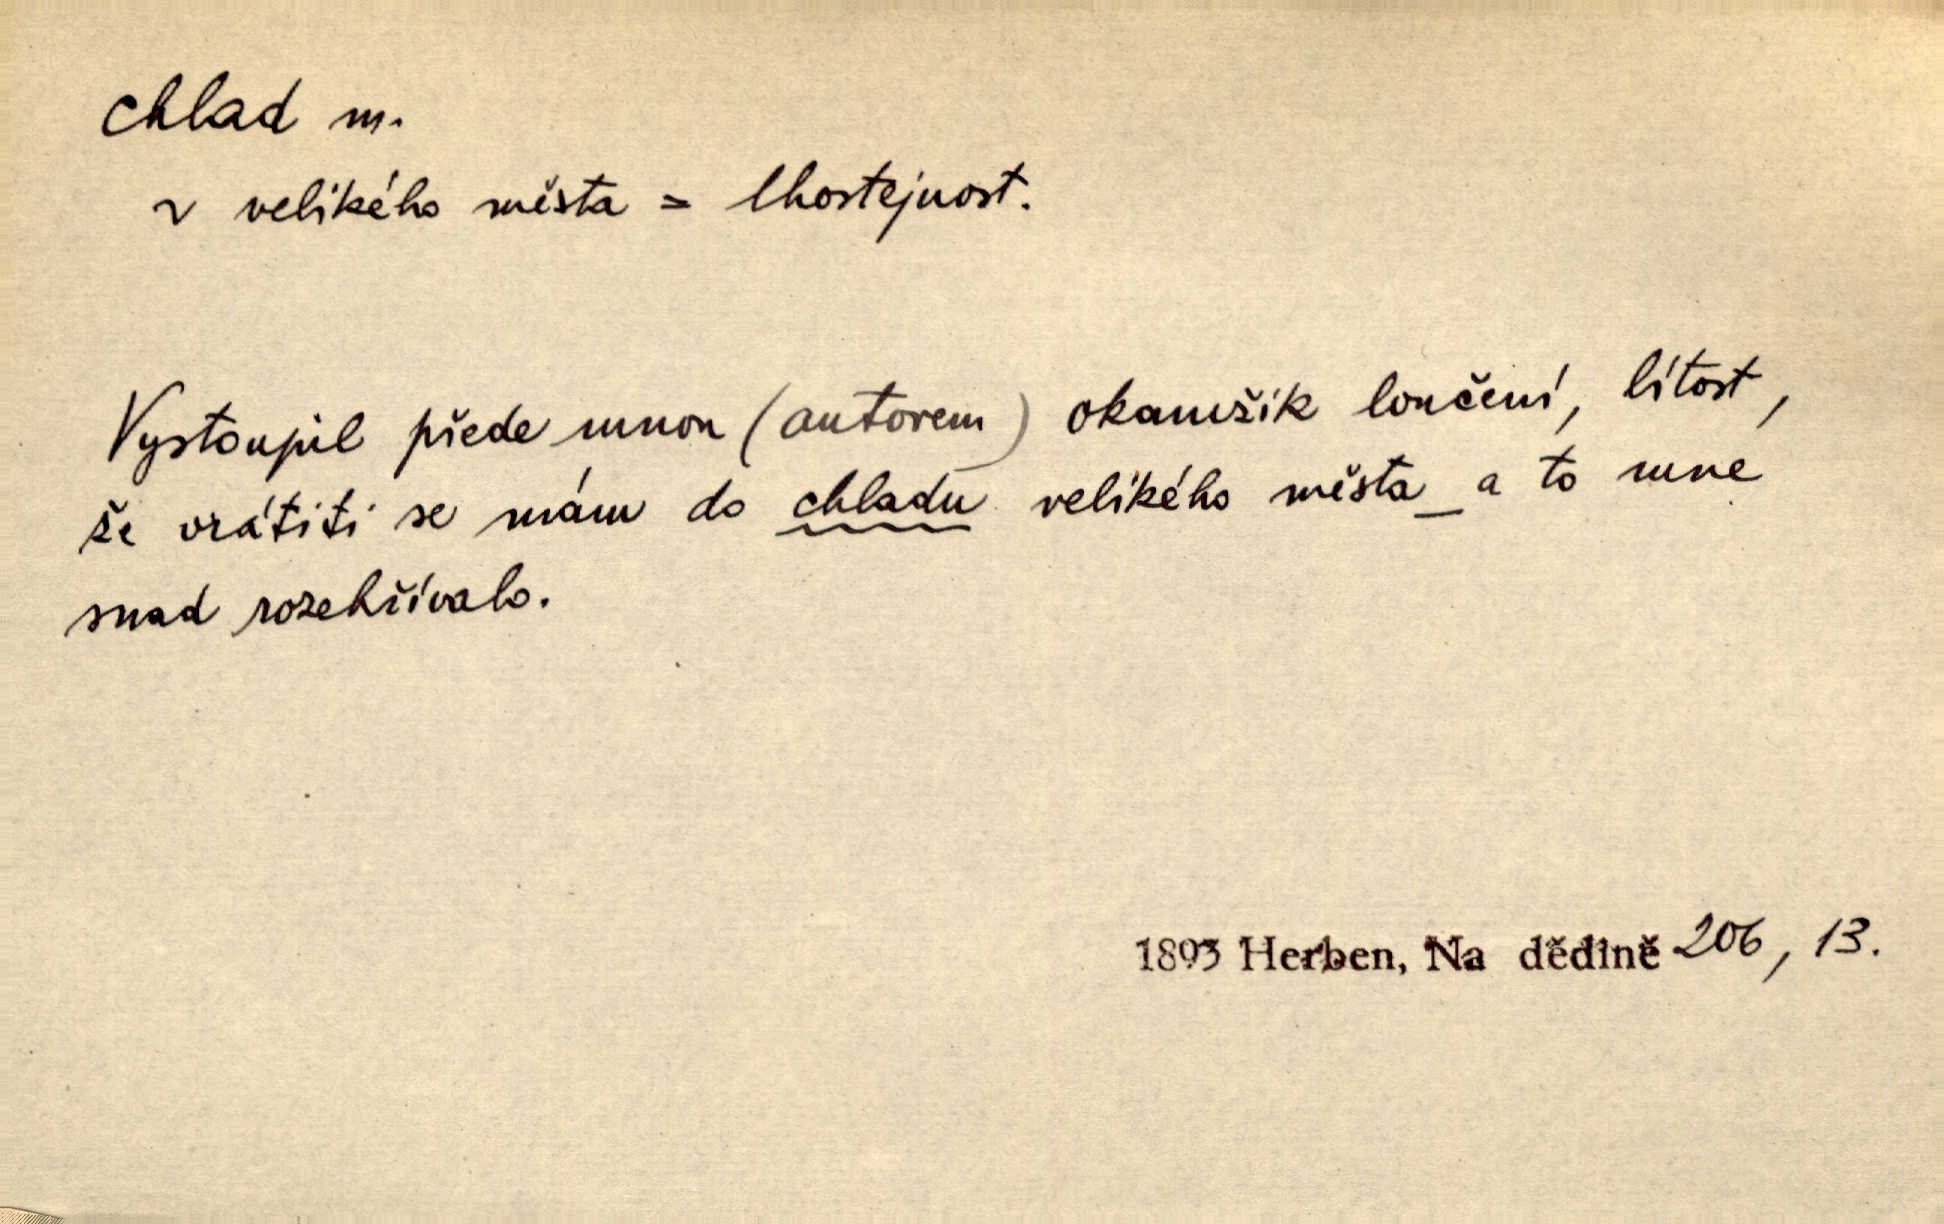 chlad m.
~ velikého města = lhostejnost.
Vystoupil přede mnou (autorem) okamžik loučení, lítost,
že vrátiti se mám do chladu velikého města _ a to mne
snad rozehřívalo.
1893 Herben, Na dědině 206, 13.